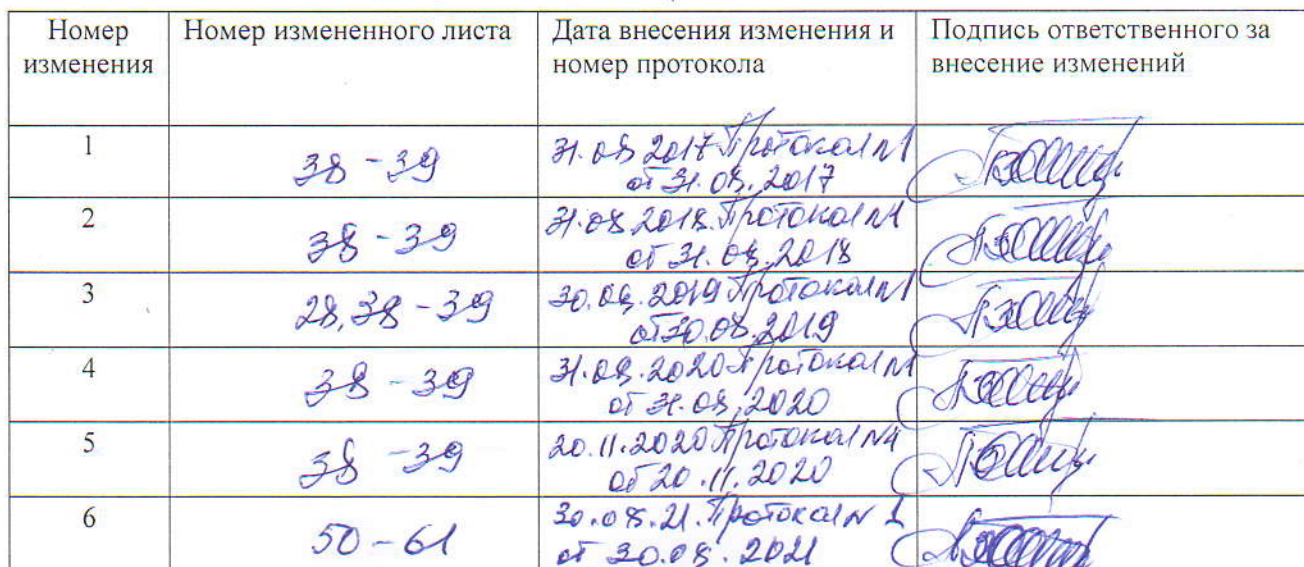 Номер изменения Номер измененного листа Дата внесения изменения и номер протокола Подпись ответственного за внесение изменений
1 38 - 39 31.08 2017 Протокол №1
от 31.08.2017
2 38 - 39 31.08 2018. Протокол №1
от 31.08.2018
3 28, 38 - 39 30.08.2019 Протокол №1
от 30.08.2019
4 38 - 39 31.08.2020 Протокол №1
от 31.08.2020
5 38 - 39 20.11.2020 Протокол №4
от 20.11.2020
6 50 - 61 30.08.21. Протокол № 1
от 30.08.2021